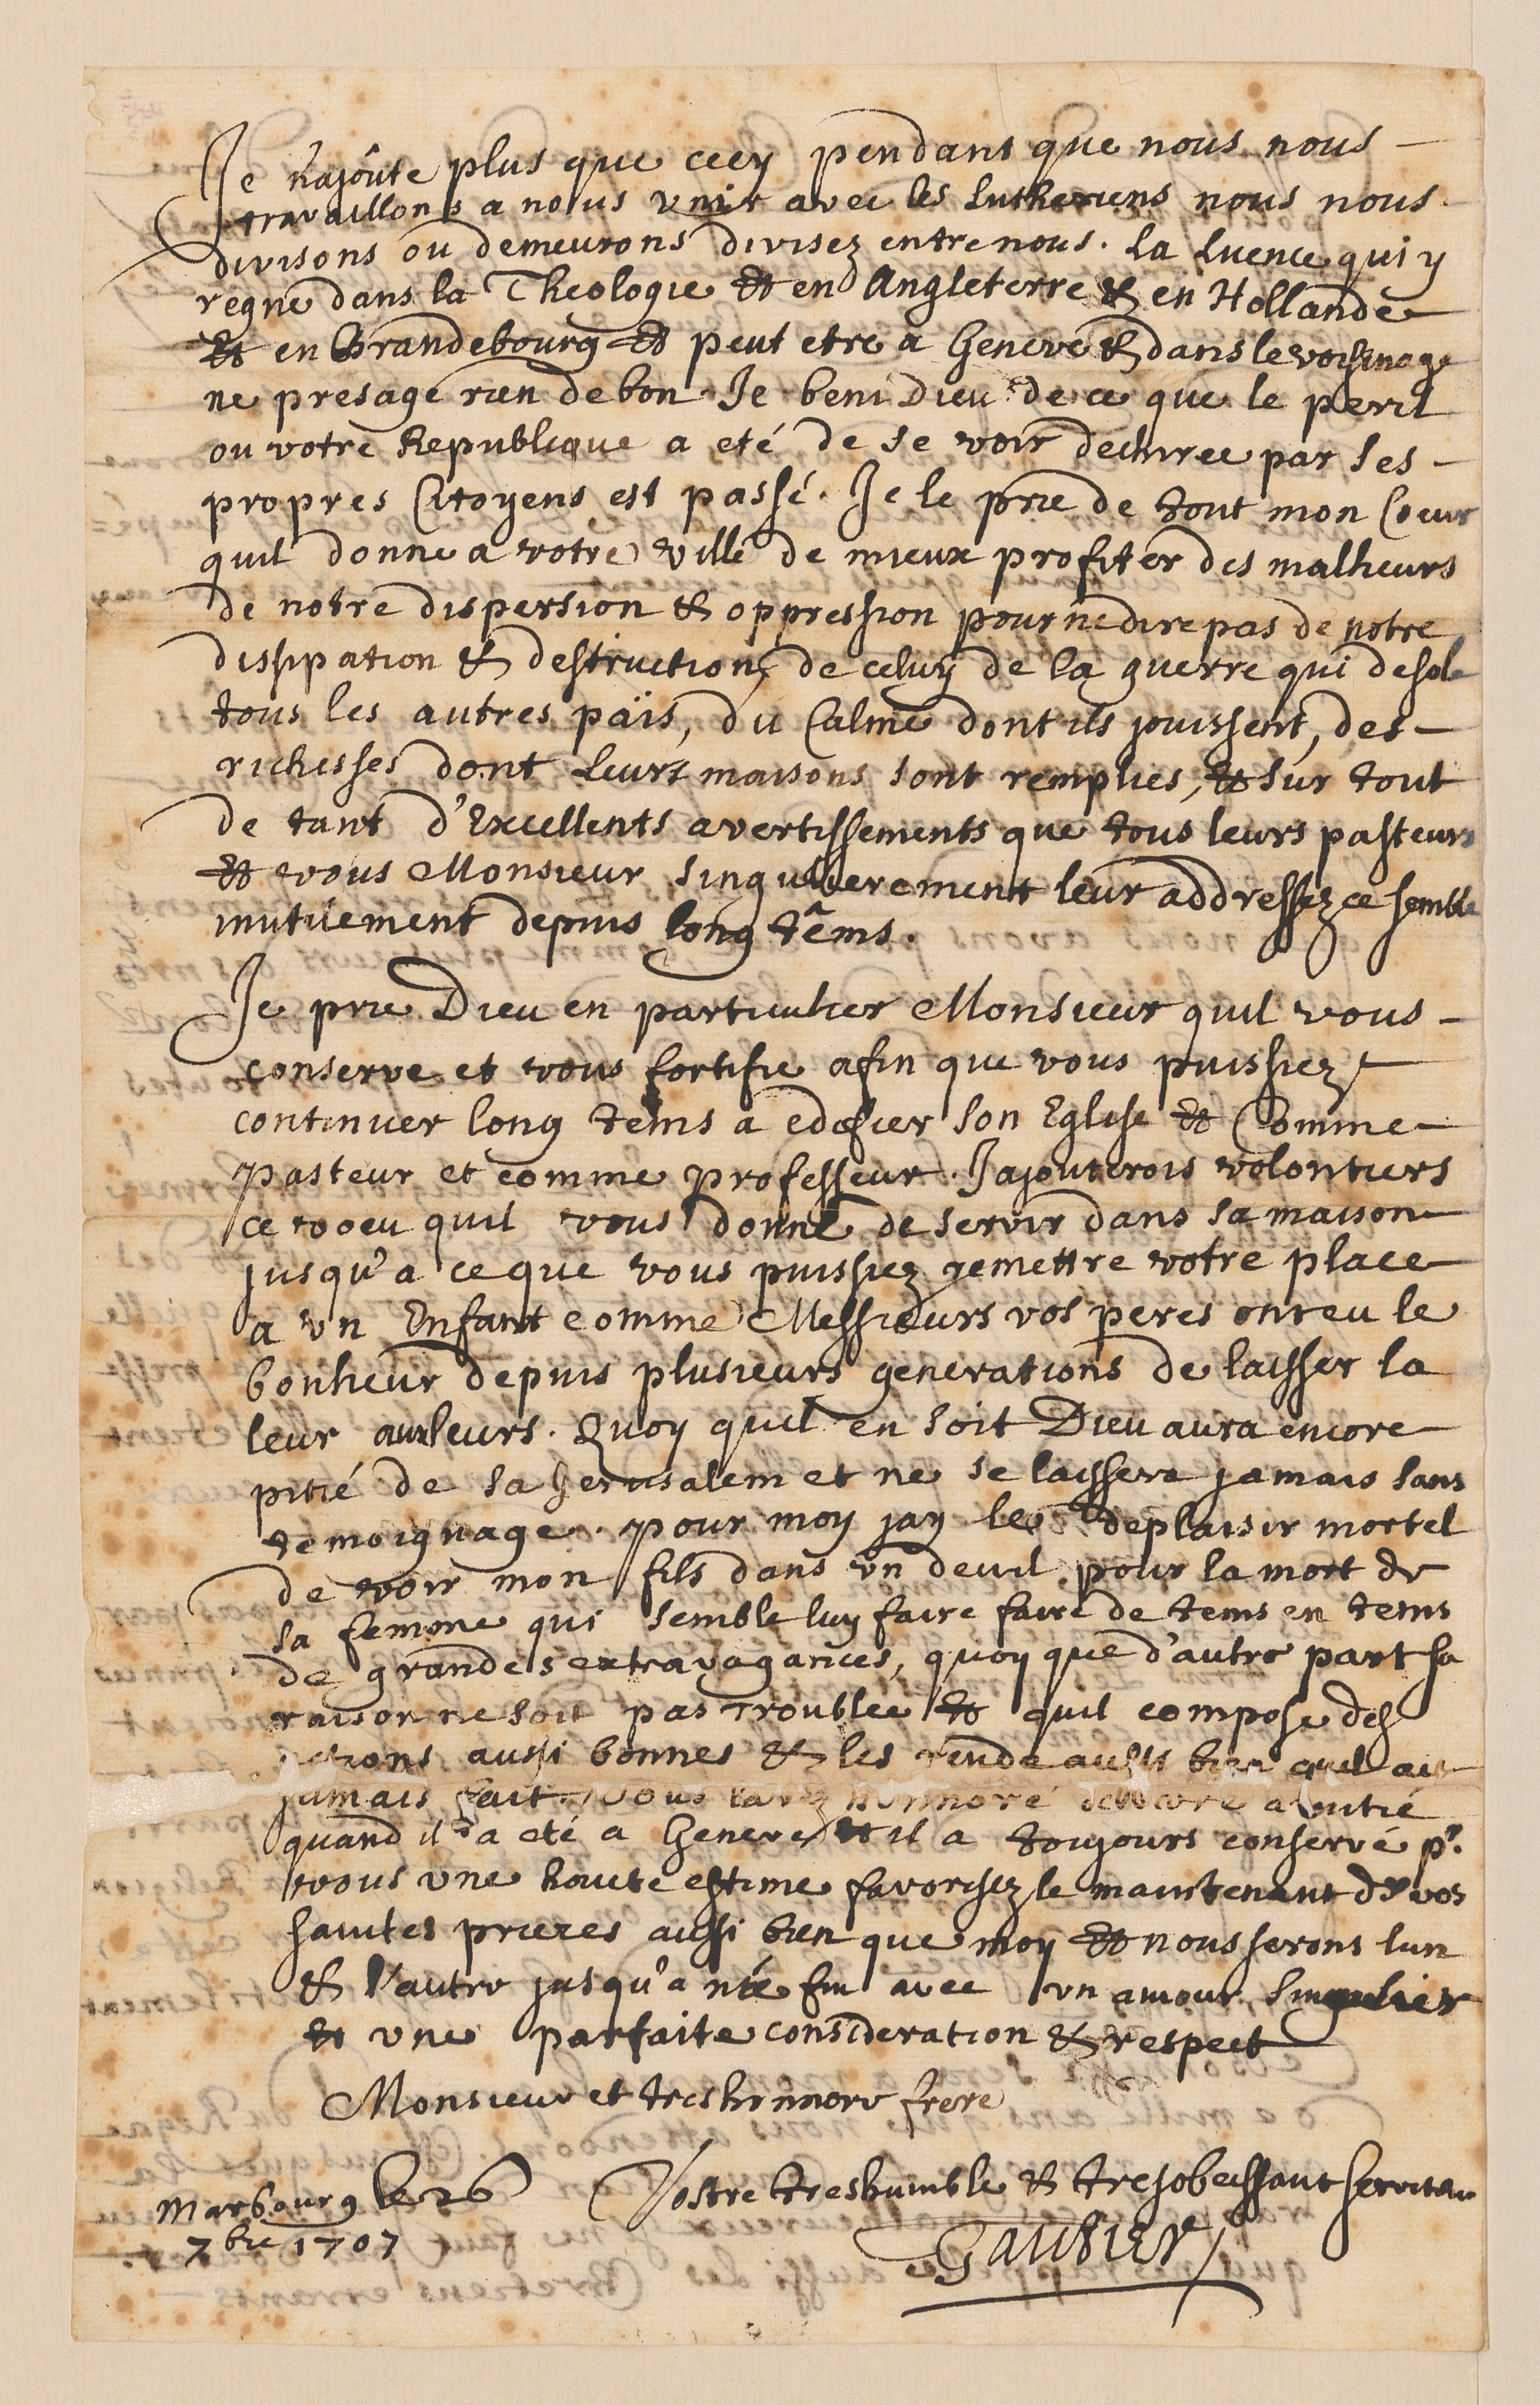 Je n'ajoûte plus que cecy pendant que nous nous
travaillons a nous vnir avec les Lutheriens nous nous
divisons ou demeurons divisez entre nous. la Licence qui y
regne dans la Theologie et en Angleterre & en Hollande
et en Brandebourg et peut etre a Geneve & dans le voisinage
ne presage rien de bon Je beni Dieu de ce que le peril
ou votre Republique a eté de se voir dechiree par ses
propres Citoyens est passé. Je le prie de tout mon Coeur
quil donne a votre ville de mieux profiter des malheurs
de notre dispersion & oppression pour ne dire pas de notre
dissipation & destruction, de celuy de la guerre qui desole
tous les autres païs, du Calme dont ils jouissent, des
richesses dont leurs maisons sont remplies, et sur tout
de tant d'Excellents avertissements que tous leurs pasteurs
et vous Monsieur singulierement leur addressez ce semble
inutilement depuis long têms.
Je prie Dieu en particulier Monsieur quil vous
conserve et vous fortifie afin que vous puissiez
continuer long tems a edifier son Eglise et Comme
pasteur et comme professeur. Jajouterois volontiers
ce voeu quil vous donne de servir dans sa maison
jusqu'a ce que vous puissiez remettre votre place
a vn Enfant comme Messieurs vos peres ont eu le
bonheur depuis plusieurs generations de laisser la
leur aux leurs. Quoy quil en soit Dieu aura encore
pitié de sa Jerusalem et ne se laissera jamais sans
temoignage. pour moy jay le deplaisir mortel
de voir mon fils dans vn deuil pour la mort de
sa femme qui semble luy faire faire de tems en tems
de grandes extravagances, quoy que d'autre part sa
raison ne soit pas troublee et quil compose des
actions aussi bonnes & les rende aussi bien quil ait
jamais fait. Vous lavez honnoré de votre amitié
quand il a eté a Geneve et il a toujours conservé pr.
vous vne haute estime favorisez le maintenant de vos
saintes prieres aussi bien que moy et nous serons lun
& l'autre jusqu'a nre fin avec vn amour singulier
et vne parfaite consideration & respect
Monsieur et tres honnore frere
Vostre treshumble & tresobeissant serviteur
Gautier
Marbourg le 26
7bre 1707